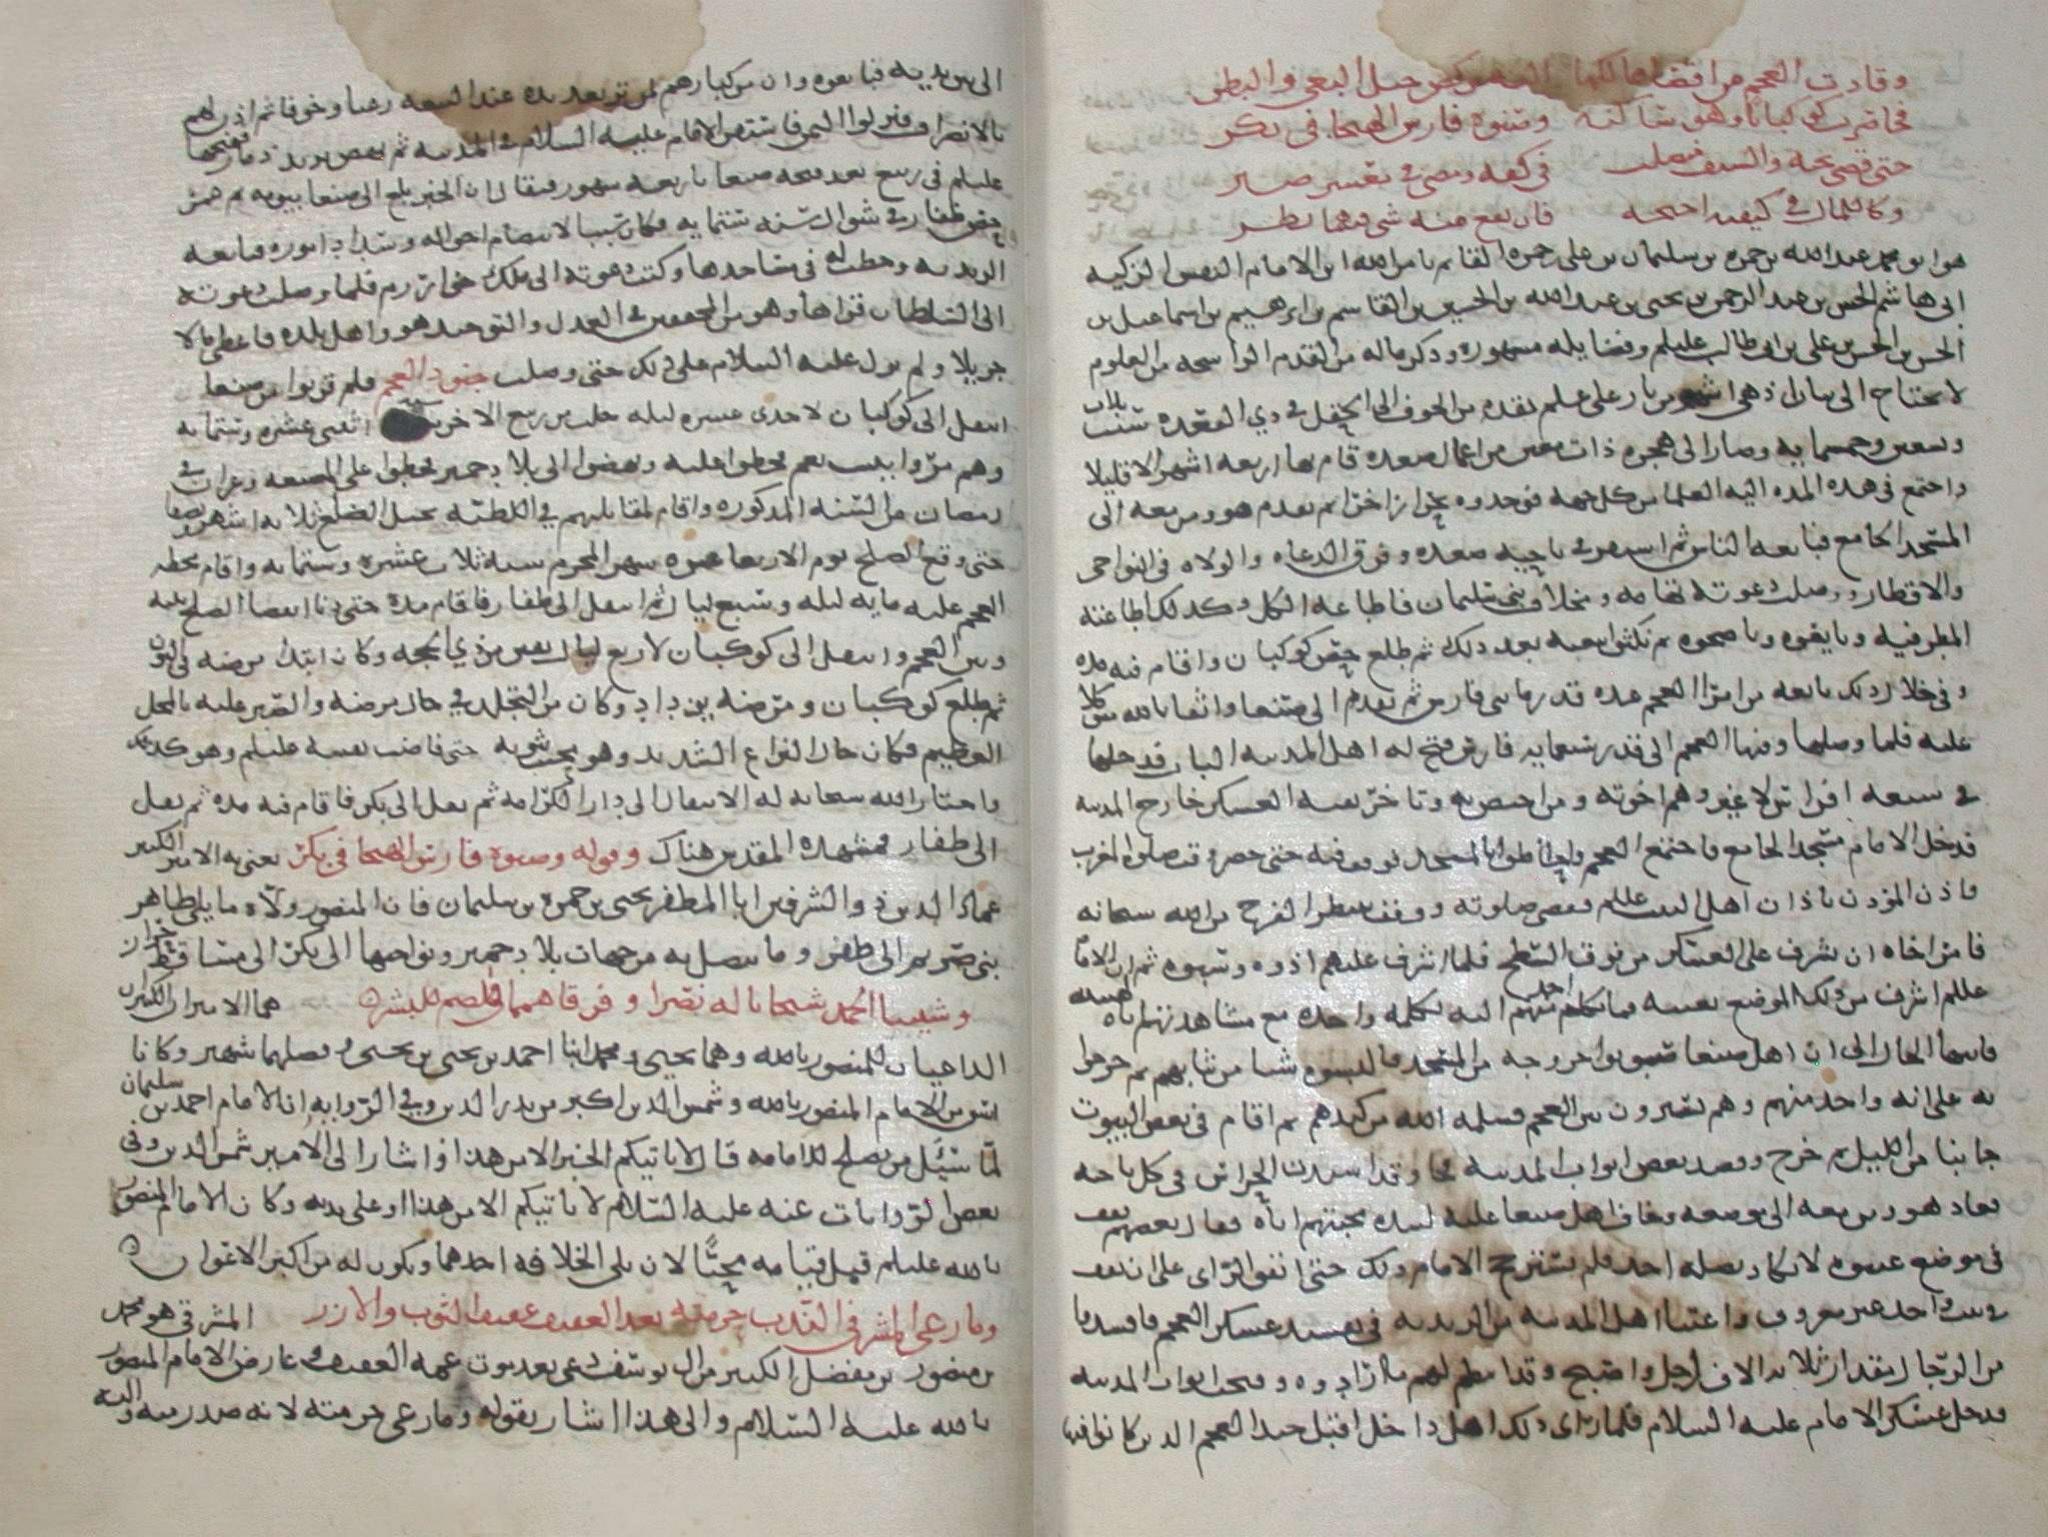 وقادت العجم من اقصاها لكها اليه من كبس خيل البغي والبطر
فحاصرت كوكبانا وهو ساكنه وصنوه فارس الهيجا في بكر
حتى قضى نحبه والسيف منصلت في كفه ومضى في معشر صبر
وكالكمال في كيفيه اجنحه فان يقع منه شي فهما بطر
هو ابو محمد عبد الله بن حمزه بن سليمان بن علي بن حمزه القائم بامر الله ابن الامام النفس الزكيه
ابي هاشم الحسن بن عبد الرحمن بن يحيى بن عبد الله بن الحسين بن القاسم بن ابرهيم بن اسماعيل بن
الحسن بن الحسن بن علي بن ابي طالب عليلم وفضايله مشهوره وذكر ماله من القدم الراسخه من العلوم
لا يحتاج الى بيان اذ هي اشهر من نار على علم تقدم من الجوف الى الحقل في ذي القعده سنت ثلاث
وتسعين وخمسمايه وصار الى هجره ذات معين من اعمال صعده قام بها اربعه اشهر الا قليلا
واجتمع في هذه المده اليه العلما من كل جهه فوجدوه بحرا زاخرا ثم تقدم هو ومن معه الى
المسجد الجامع فبايعه الناس ثم في ناحيه صعده وفرق الدعاه والولاه في النواحي
والاقطار ووصلت دعوته تهامه ومخلاف بني سليمان فاطاعه الكل وكذلك اطاعته
المطرفيه وبايعوه وناصحوه ثم نكثوا بيعته بعد ذلك ثم طلع حصن كوكبان واقام فيه مده
وفي خلال ذلك بايعه من امرا العجم عده قدر مايتي فارس ثم تقدم الى صنعا واثقا بالله متوكلا
عليه فلما وصلها وفيها العجم الى قدر سبعمايه فارس فتح له اهل المدينه الباب فدخلها
في سبعه افراس لا غير وهم اخوته ومن اختص به وتاخر بقيه العسكر خارج المدينه
فدخل الامام مسجد الجامع فاجتمع العجم واحاطوا بالمسجد فوقف فيه حتى حضر وقت صلوه المغرب
فاذن المؤذن باذان اهل البيت عليلم فقضى صلوته ووقف ينتظر الفرج من الله سبحانه
فامر اخاه ان يشرف على العسكر من فوق السطح فلما اشرف عليهم اذوه وسبوه ثم ان الامام
عليلم اشرف من ذلك الموضع بنفسه فما تكلم منهم احد اليه بكلمه واحده مع مشاهدتهم اياه هيبه
فانتهى الحال الى ان اهل صنعا خروجه من المسجد فالبسوه شيا من ثيابهم ثم خرجوا
به على انه واحد منهم وهم يسيرون بين العجم فسلمه الله من كيدهم ثم اقام في بعض البيوت
جانبا من الليل ثم خرج وقصد بعض ابواب المدينه وقد اشتدت الحراس في كل ناحيه
فعاد هو ومن معه الى موضعه وخاف اهل صنعا عليه لشده محبتهم اياه فقال بعضهم يقف
في موضع لا يكاد يصله احد فلم يستنزح الامام ذلك حتى اتفق الراي على ان يقف
في بيت واحد غير معروف واعتنا اهل المدينه من الزيديه في تفسيد عسكر العجم فافسدوا
من الرجال مقدار ثلاثه الاف راجل واصبح وقد انتظم لهم ما ارادوه وفتحت ابواب المدينه
فدخل عسكر الامام عليه السلام فلما راى ذلك اهل داخل اقبل جند العجم الذين كانوا فيها
الى بين يديه فبايعوه وان من كبارهم لمن ترتعد يده عند البيعه رعبا وخوفا ثم اذن لهم
بالانصراف ونزلوا اليمن فاستقر الامام عليه السلام في المدينه ثم نهض يريد ذمار ففتحها
عليلم في ربيع بعد فتحه صنعا باربعه شهور فيقال ان الخبر بلغ الى صنعا بيومه ثم عمر
حصن ظفار في شوال سنه ستمايه فكان سببا لانتظام احواله وسداد اموره فبايعه
الزيديه وخطب له في مساجدها وكتب دعوته الى ملك خوارزم فلما وصلت دعوته
الى السلطان قراها وهو من المحققين في العدل والتوحيد هو واهل بلده فاعطى مالا
جزيلا ولم يزل عليه السلام على ذلك حتى وصلت جنود العجم فلم قربوا من صنعا
انتقل الى كوكبان لاحدى عشره ليله خلت من ربيع الاخر سنه اثنى عشره وستمايه
وهم مروا ببيت نعم فحطوا عليه ونهضوا الى بلاد حمير فحطوا على المصنعه وعزان في
رمضان من السنه المذكوره واقام لمقابلتهم في اللطيه بجبل الضلع ثلاثه اشهر ونصفا
حتى وقع الصلح يوم الاربعا شهر المحرم سنه ثلاث عشره وستمايه واقام محطه
العجم عليه مايه ليله وسبع ليال ثم انتقل الى ظفار فاقام مده حتى دنا انقضا الصلح بينه
وبين العجم وانتقل الى كوكبان لاربع ليال بقين من ذي الحجه وكان ابتدا مرضه في البون
ثم طلع كوكبان ومرضه يزداد وكان من التجلد في حال مرضه والصبر عليه بالمحل
العظيم فكان حال النزاع الشديد وهو محتب بثوبه حتى فاضت نفسه عليلم وهو كذلك
واختار الله سبحانه له الانتقال الى دار الكرامه ثم نقل الى بكر فاقام فيه مده ثم نقل
الى ظفار فمشهده المقدس هناك وقوله وصنوه فارس الهيجا في بكر يعني به الامير الكبير
عماد الدين ذو الشرفين ابا المظفر يحيى بن حمزه بن سليمان فان المنصور ولاه ما يلي طاهر
بني صريم الى ظفر وما يتصل به من جهات بلاد حمير ونواحيها الى بكر الى مساقط حراز
وشيبا الحمد شبحانا له نصرا وفرقاهما للبشر هما الاميران الكبيران
الداعيان للمنصور بالله وهما يحيى ومحمد ابنا احمد بن يحيى بن يحيى وفضلهما شهير وكانا
اسن من الامام المنصور بالله وشمس الدين اكبر من بدر الدين وفي الروايه ان الامام احمد بن سليمان
لما سئل من يصلح للامامه قال لا ياتيكم الخبر الا من هذا واشار الى الامير شمس الدين وفي
بعض الروايات عنه عليه السلام لا ياتيكم الا من هذا او على يديه وكان الامام المنصور
بالله عليلم قبل قيامه محبا لان يلي الخلافه احدهما ويكون له من اكبر الاعوان
وما رعى المشرقي الندب حرمته بعد العفيف عفيف الثوب والازر المشرقي هو محمد
بن منصور بن مفضل الكبير من ال يوسف دعى بعد موت عمه العفيف وعارض الامام المنصور
بالله عليه السلام والى هذا اشار بقوله وما رعى حرمته لانه صدر منه واليه